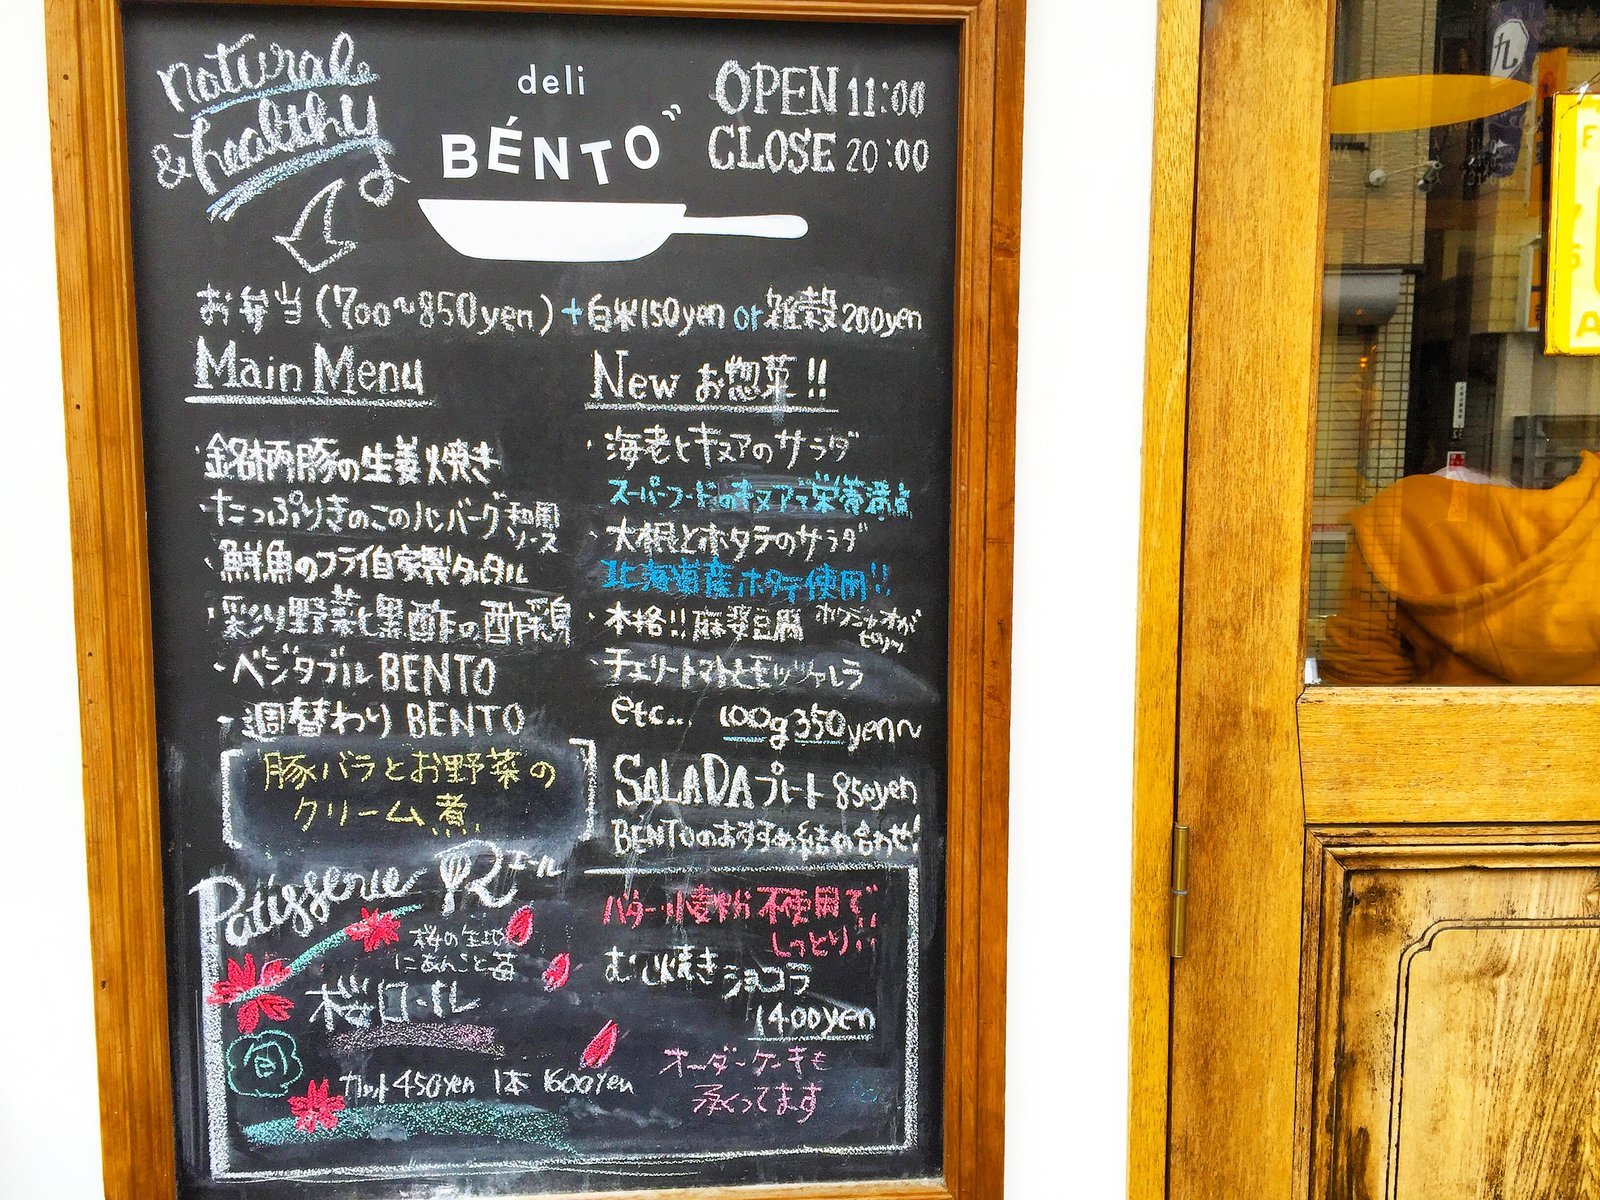 natural
& healthy
deli
BÉNTO
OPEN 11:00
CLOSE 20:00
お弁当(700〜850yen)+白米150yen or 雑穀200yen
Main Menu
・銘柄豚の生姜焼き
・たっぷりきのこのハンバーグ和風
ソース
・鮮魚のフライ自家製タルタル
・彩り野菜と黒酢の酢鶏
・ベジタブルBENTO
・週替わりBENTO
豚バラとお野菜の
クリーム煮
New お惣菜!!
・海老とキヌアのサラダ
スーパーフードのキヌアで栄養満点
・大根とホタテのサラダ
北海道産ホタテ使用!!
・本格!!麻婆豆腐 ホワジャオが
ピリッ
・チェリートマトとモッツァレラ
etc... 100g350yen〜
SALADAプレート 850yen
BENTOのおすすめ詰め合わせ!
Patisserie R エール
桜の生地
にあんこと苺
桜ロール
カット450yen 1本1600yen
バター小麦粉不使用で
しっとり!!
むし焼き
ショコラ
1400yen
オーダーケーキも
承ってます
九